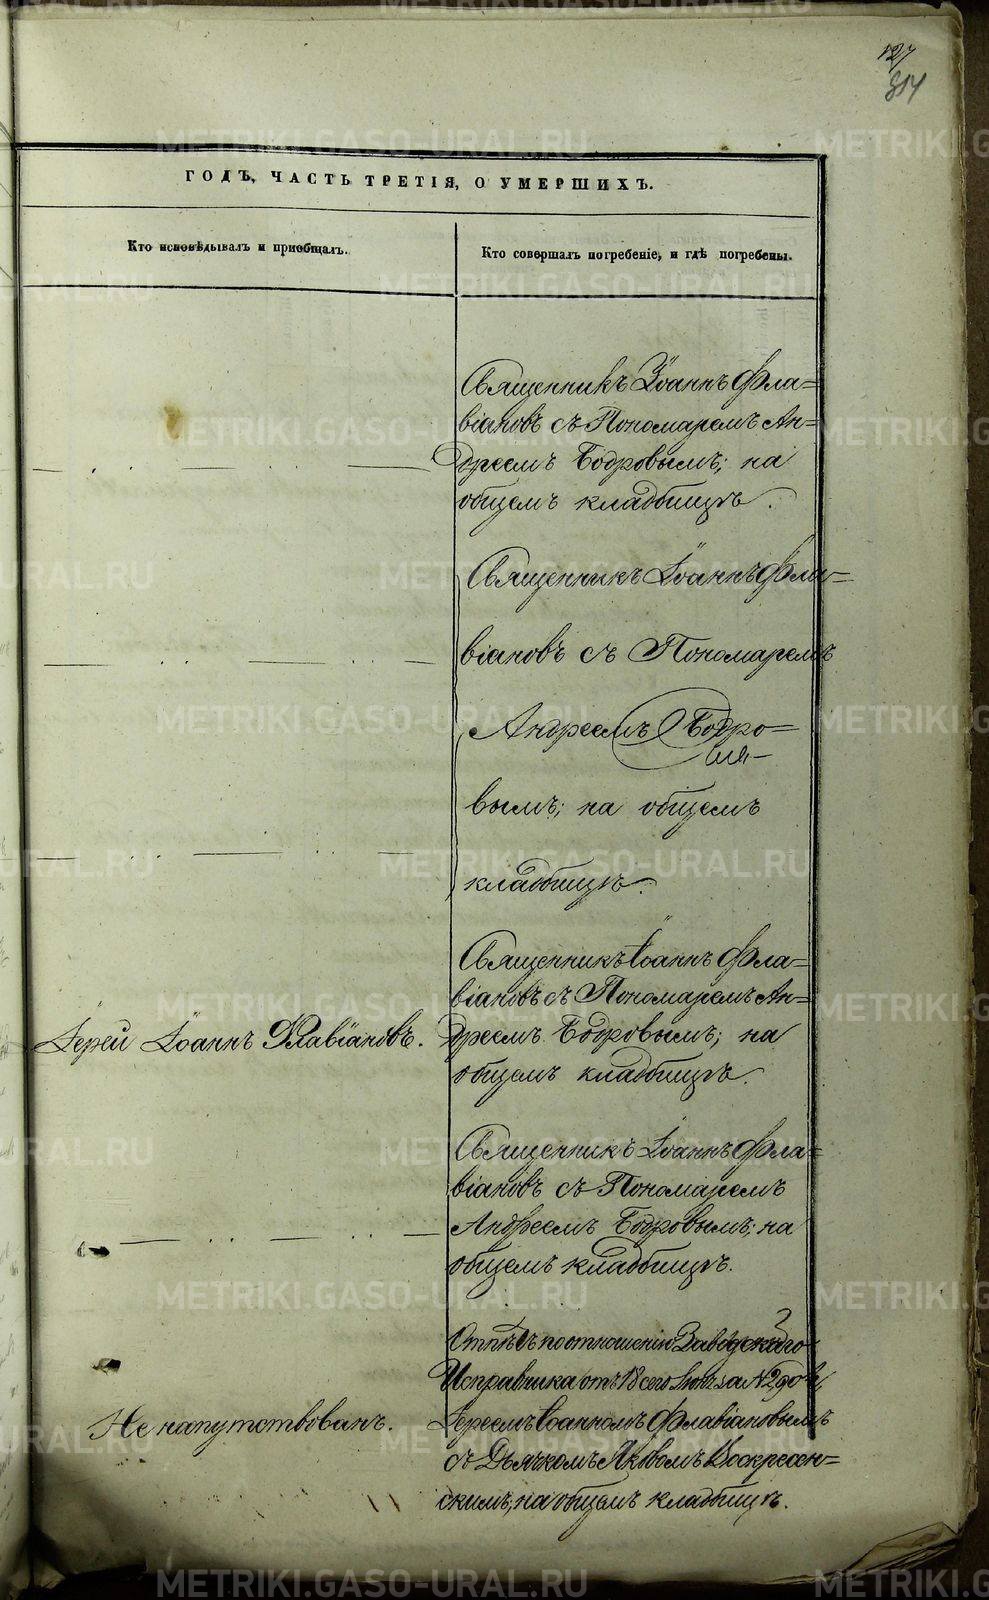 127
814
ГОДЪ, ЧАСТЬ ТРЕТІЯ, О УМЕРШИХЪ.
Кто исповѣдывалъ и пріобщалъ.
Кто совершалъ погребеніе, и гдѣ погребены.
Священникъ Іоаннъ Фла=
віановъ съ Пономаремъ Ан=
дреемъ Бодровымъ; на
общемъ кладбищѣ.
Священникъ Іоаннъ Фла=
віановъ съ Пономаремъ
Андреемъ Бодро=
вымъ; на общемъ
кладбищѣ.
Іерей Іоаннъ Флавіановъ.
Священникъ Іоаннъ Фла=
віановъ съ Пономаремъ Ан=
дреемъ Бодровымъ; на
общемъ кладбищѣ.
Священникъ Іоаннъ Фла=
віановъ съ Пономаремъ
Андреемъ Бодровымъ; на
общемъ кладбищѣ.
Не напутствованъ.
Отпѣтъ по отношенію Заводскаго
Исправника отъ 18 сего за №
Іереемъ Іоанномъ Флавіановымъ
съ Дьячкомъ Яковомъ Воскресен=
скимъ, на общемъ кладбищѣ.
METRIKI.GASO-URAL.RU